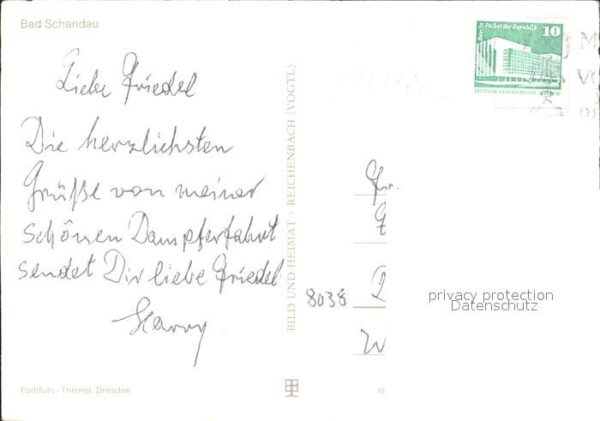 Bad Schandau
Liebe Friedel
Die herzlichsten
Grüße von meiner
schönen Dampferfahrt
sendet Dir liebe Friedel
Harry
Farbfoto: Thienel, Dresden
BILD UND HEIMAT · REICHENBACH (VOGTL)
10
Berlin, Palast der Republik
Fr.
8038
privacy protection
Datenschutz